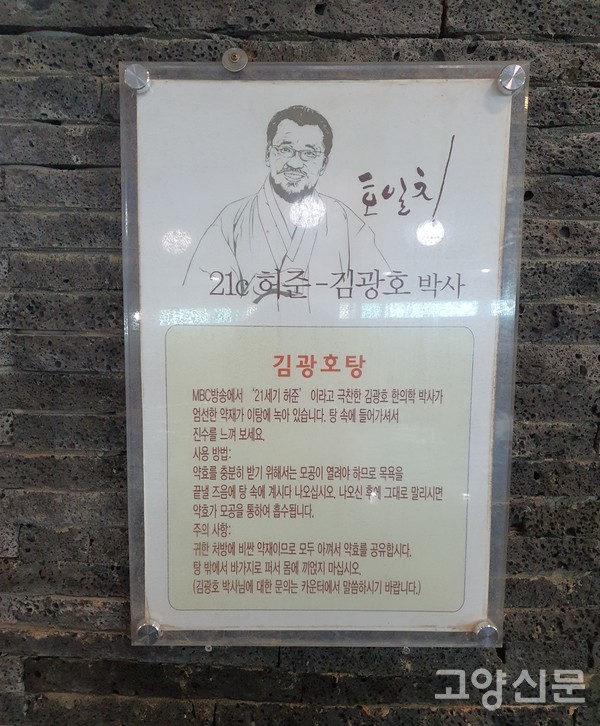 호일침
21c 허준 - 김광호 박사
김광호탕
MBC방송에서 '21세기 허준' 이라고 극찬한 김광호 한의학 박사가
엄선한 약재가 이탕에 녹아 있습니다. 탕 속에 들어가셔서
진수를 느껴 보세요.
사용 방법:
약효를 충분히 받기 위해서는 모공이 열려야 하므로 목욕을
끝낼 즈음에 탕 속에 계시다 나오십시오. 나오신 후에 그대로 말리시면
약효가 모공을 통하여 흡수됩니다.
주의 사항:
귀한 처방에 비싼 약재이므로 모두 아껴서 약효를 공유합시다.
탕 밖에서 바가지로 퍼서 몸에 끼얹지 마십시오.
(김광호 박사님에 대한 문의는 카운터에서 말씀하시기 바랍니다.)
고양신문